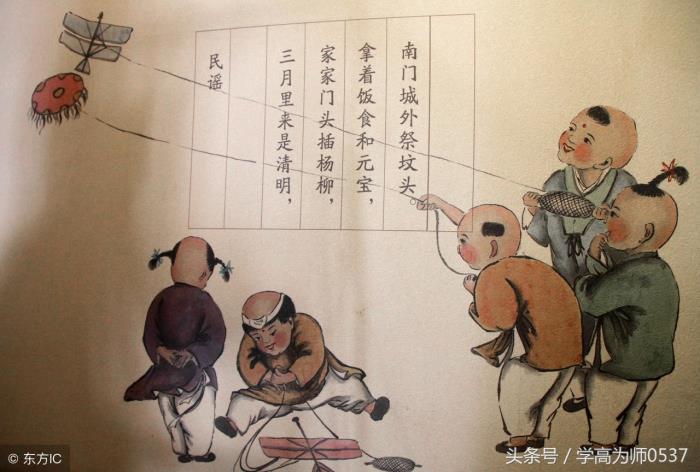 民谣
三月里来是清明，
家家门头插杨柳，
拿着饭食和元宝，
南门城外祭坟头
© 东方IC
头条号／学高为师0537